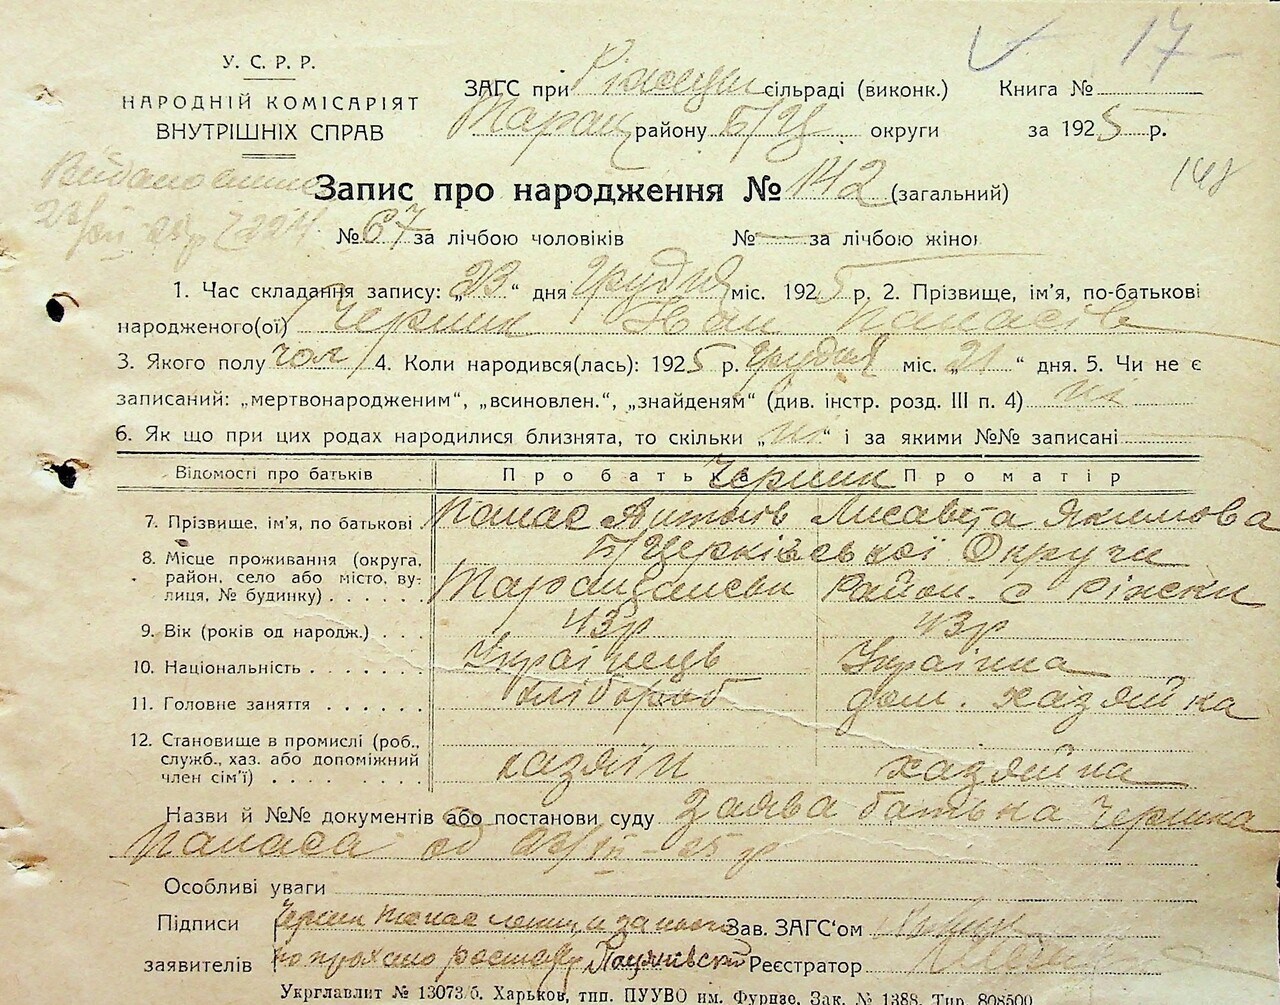 У. С. Р. Р.
НАРОДНІЙ КОМІСАРІЯТ
ВНУТРІШНІХ СПРАВ
17
ЗАГС при сільраді (виконк.) Книга №
Таращ району Б/Ц округи за 1925 р.
148
Видано
Запис про народження № 142 (загальний)
№ 67 за лічбою чоловіків № — за лічбою жіно
1. Час складання запису: „23“ дня грудня міс. 1925 р. 2. Прізвище, ім'я, по-батькові
народженого(ої) Черник Іван Панасів
3. Якого полу чол 4. Коли народився(лась): 1925 р. грудня міс. „21“ дня. 5. Чи не є
записаний: „мертвонародженим“, „всиновлен.“, „знайденям“ (див. інстр. розд. III п. 4) ні
6. Як що при цих родах народилися близнята, то скільки „ні“ і за якими №№ записані
Відомості про батьків Про батька Черник Про матір
7. Прізвище, ім'я, по батькові Панас Антонів Лисавета Якимова
8. Місце проживання (округа, Б/Церківської Округи
район, село або місто, ву-
лиця, № будинку) Район. с
9. Вік (років од народж.) 43 р 43 р
10. Національність Українець Українка
11. Головне заняття хлібороб дом. хазяйка
12. Становище в промислі (роб.,
служб., хаз. або допоміжний
член сім'ї) хазяїн хазяйка
Назви й №№ документів або постанови суду Заява батька Черника
Панаса од 23/XII – 25 р
Особливі уваги
Підписи Черник Панас за нього Зав. ЗАГС'ом
заявителів Реєстратор
Укрглавліт № 13073/б. Харьков, тип. ПУУВО им. Фрунзе, Зак. № 1388. Тир. 808500